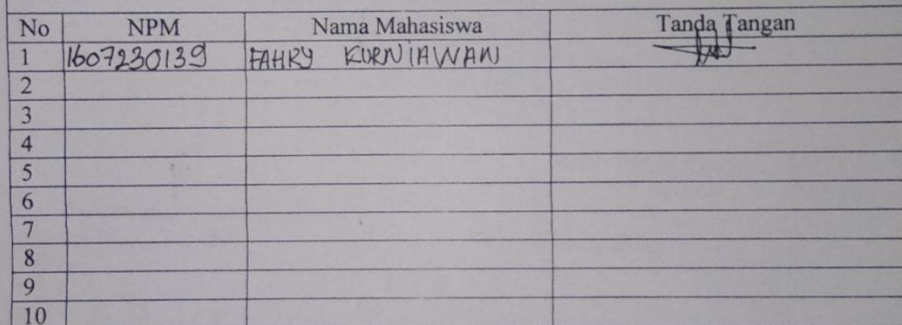 No NPM Nama Mahasiswa Tanda Tangan
1 1607230139 FAHRY KURNIAWAN
2
3
4
5
6
7
8
9
10